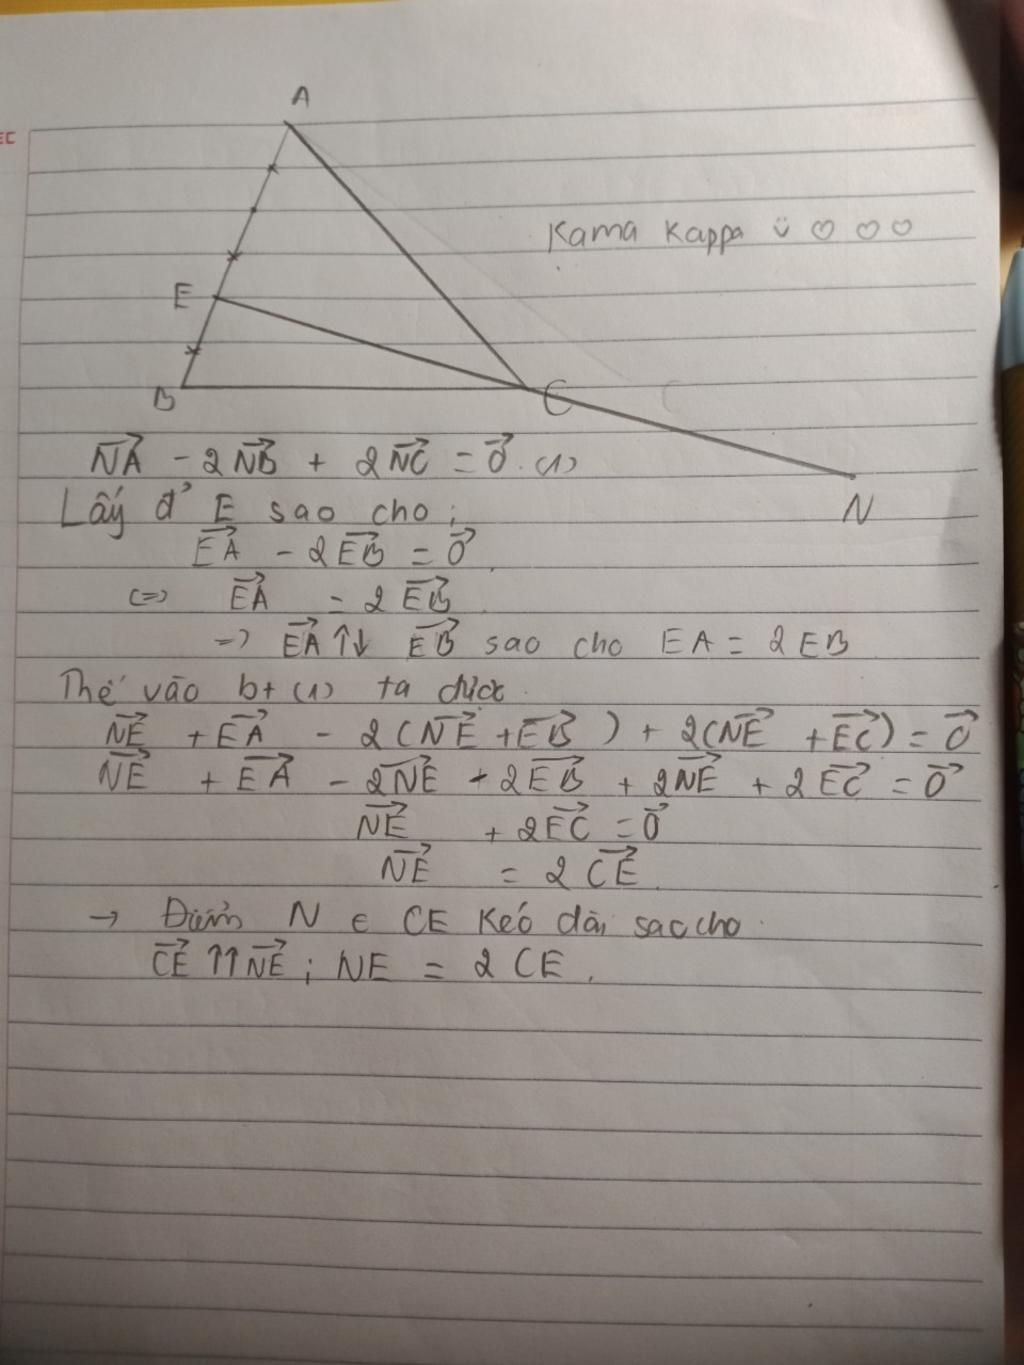 A
EC
Kama Kappa ü ♡ ♡ ♡
E
B
C
C
N
NA⃗ - 2NB⃗ + 2NC⃗ = 0⃗. (1)
Lấy đ' E sao cho;
EA⃗ - 2EB⃗ = 0⃗.
(=) EA⃗ = 2 EB⃗
=) EA⃗ ↑↓ EB⃗ sao cho EA = 2EB
Thế vào bt (1) ta được
NE⃗ + EA⃗ - 2(NE⃗ + EB⃗) + 2(NE⃗ + EC⃗) = 0⃗
NE⃗ + EA⃗ - 2NE⃗ - 2EB⃗ + 2NE⃗ + 2EC⃗ = 0⃗
NE⃗ + 2EC⃗ = 0⃗
NE⃗ = 2 CE⃗.
→ Điểm N ∈ CE kéo dài sao cho.
CE⃗ ↑↑ NE⃗ ; NE = 2 CE.